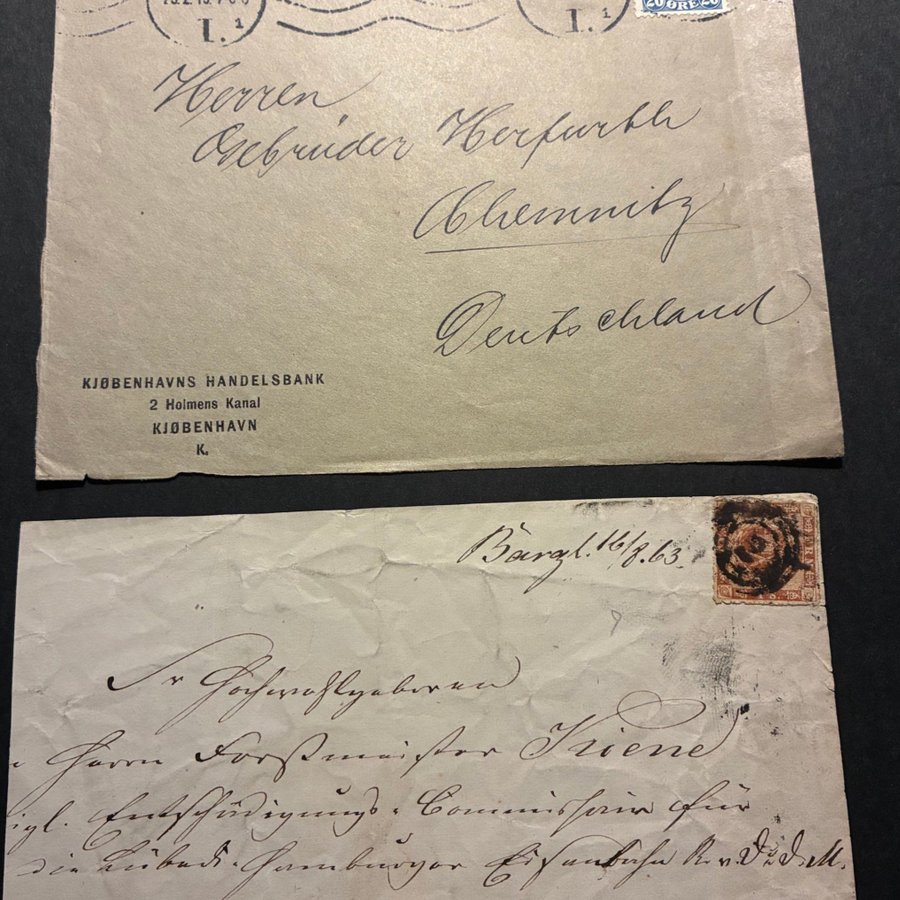 I. 1
I. 1
20 ØRE 20
Herren
Gebrüder Herfurth
Chemnitz
Deutschland
KJØBENHAVNS HANDELSBANK
2 Holmens Kanal
KJØBENHAVN
K.
16/8.63.
Sr Hochwohlgeboren
Herrn Forstmeister Kriene
Entschädigungs-Commissair für
die Lübeck-Hamburger Eisenbahn R. v. D. d. M.